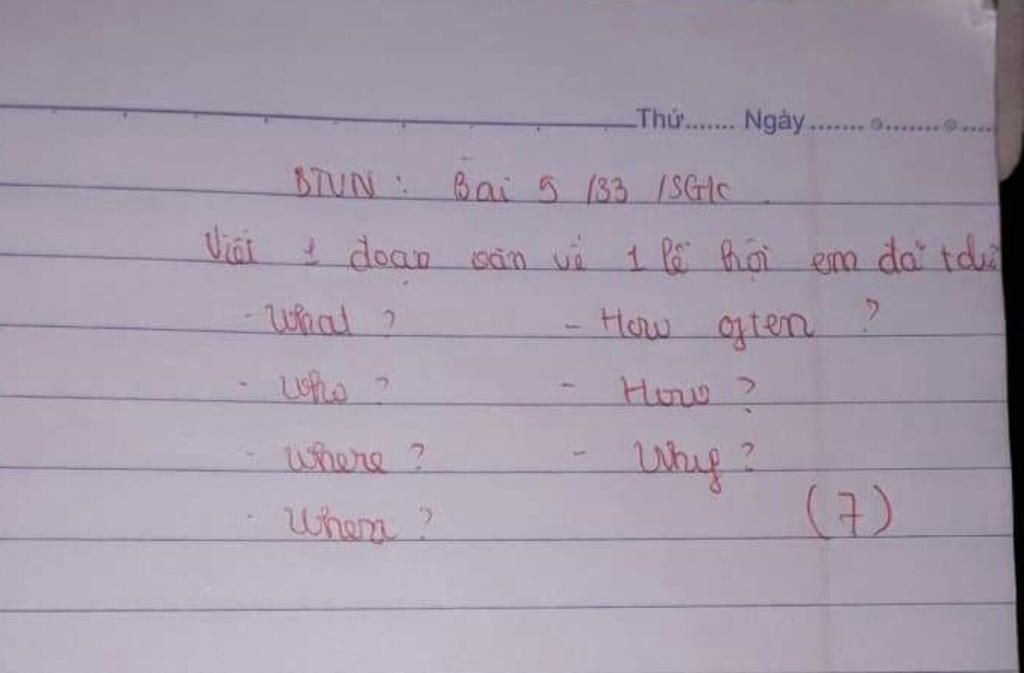 Thứ....... Ngày.............
BTVN : Bài 5 /33 /SGK
Viết 1 đoạn văn về 1 lễ hội em đã
- What ? - How often ?
- Who ? - How ?
- Where ? - Why ?
- When ? (7)